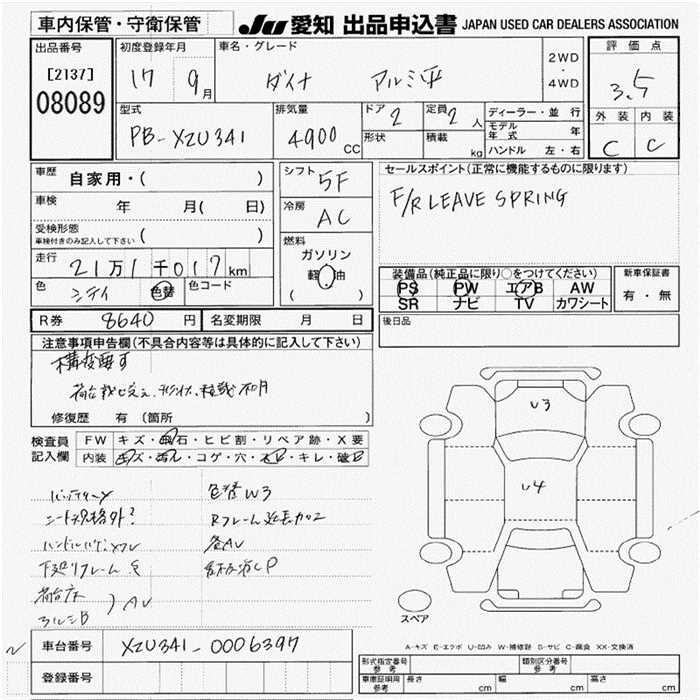 車内保管・守衛保管
JU 愛知 出品申込書 JAPAN USED CAR DEALERS ASSOCIATION
出品番号
[2137]
08089
初度登録年月
17 9月
車名・グレード
ダイナ アルミ平
2WD
・
4WD
評価点
3.5
外装 内装
C C
型式
PB-XZU341
排気量
4900CC
ドア 2
形状
定員 2人
積載 kg
ディーラー・並行
モデル年式 年
ハンドル 左・右
車歴 自家用・( )
車検 年 月( 日)
受検形態 ( )
車検付きのみ記入して下さい
走行 21万1千017km
色 シロイ 色替 色コード
シフト 5F
冷房 AC
燃料
ガソリン
軽油
( )
セールスポイント(正常に機能するものに限ります)
F/R LEAVE SPRING
装備品(純正品に限り○をつけてください)
PS PW エアB AW
SR ナビ TV カワシート
新車保証書
有・無
R券 8640円 名変期限 月 日
後日品
注意事項申告欄(不具合内容等は具体的に記入して下さい)
構変要す
修復歴 有(箇所 )
検査員記入欄
FW キズ・飛石・ヒビ割・リペア跡・X要
内装 キズ・汚れ・コゲ・穴・スレ・キレ・破れ
色替W3
シート規格外?
Rフレーム延長加工
各AU
下廻りフレームサ
荷台床
アルミB
)AU
U3
U4
スペア
車台番号 XZU341-0006397
登録番号
A-キズ E-エクボ U-凹み W-補修跡 S-サビ C-腐食 XX-交換済
形式指定番号 参考
類別区分番号 参考
車庫証明用 参考 長さ cm 幅 cm 高さ cm